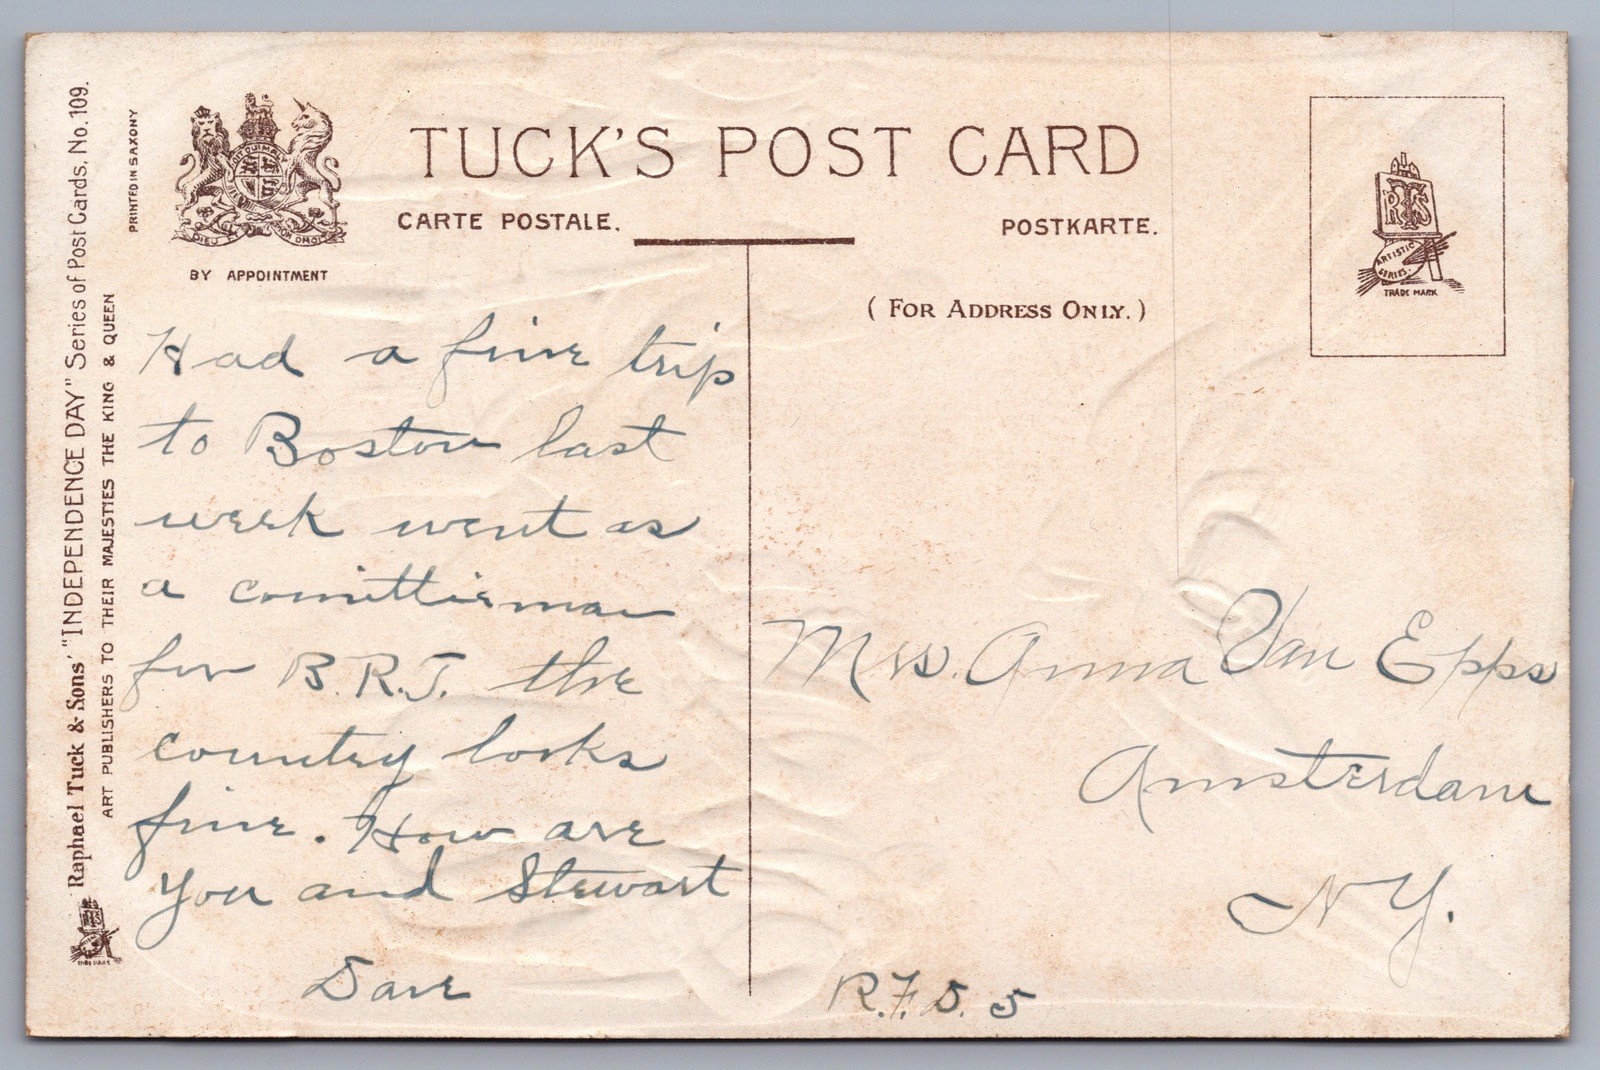 Raphael Tuck & Sons' "INDEPENDENCE DAY" Series of Post Cards, No. 109.
ART PUBLISHERS TO THEIR MAJESTIES THE KING & QUEEN
PRINTED IN SAXONY
BY APPOINTMENT
TUCK'S POST CARD
CARTE POSTALE.
POSTKARTE.
(FOR ADDRESS ONLY.)
ARTISTIC
SERIES.
TRADE MARK
Had a fine trip
to Boston last
week went as
a comitteeman
for B.R.T. the
country looks
fine. How are
you and Stewart
Dave
Mrs. Anna Van Epps
Amsterdam
N Y.
R.F.D. 5